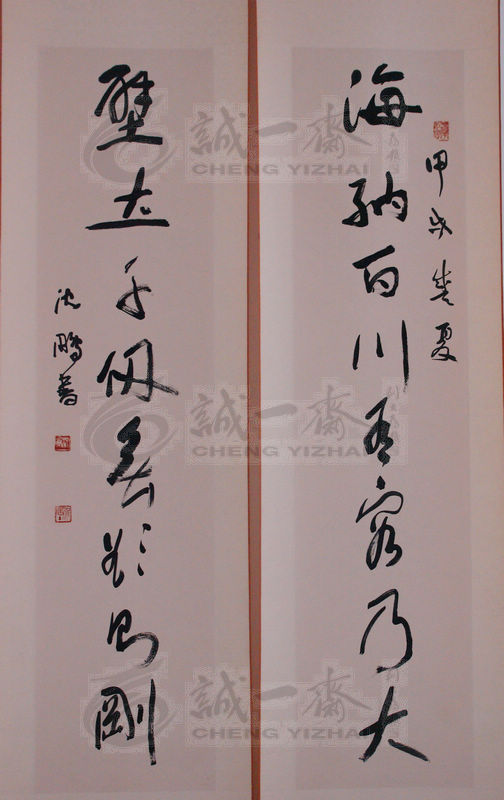 甲戌夏
海納百川有容乃大
壁立千仞無欲則剛
沈鵬書
誠一齋
CHENG YIZHAI
誠一齋
CHENG YIZHAI
誠一齋
CHENG YIZHAI
誠一齋
CHENG YIZHAI
誠一齋
CHENG YIZHAI
誠一齋
CHENG YIZHAI